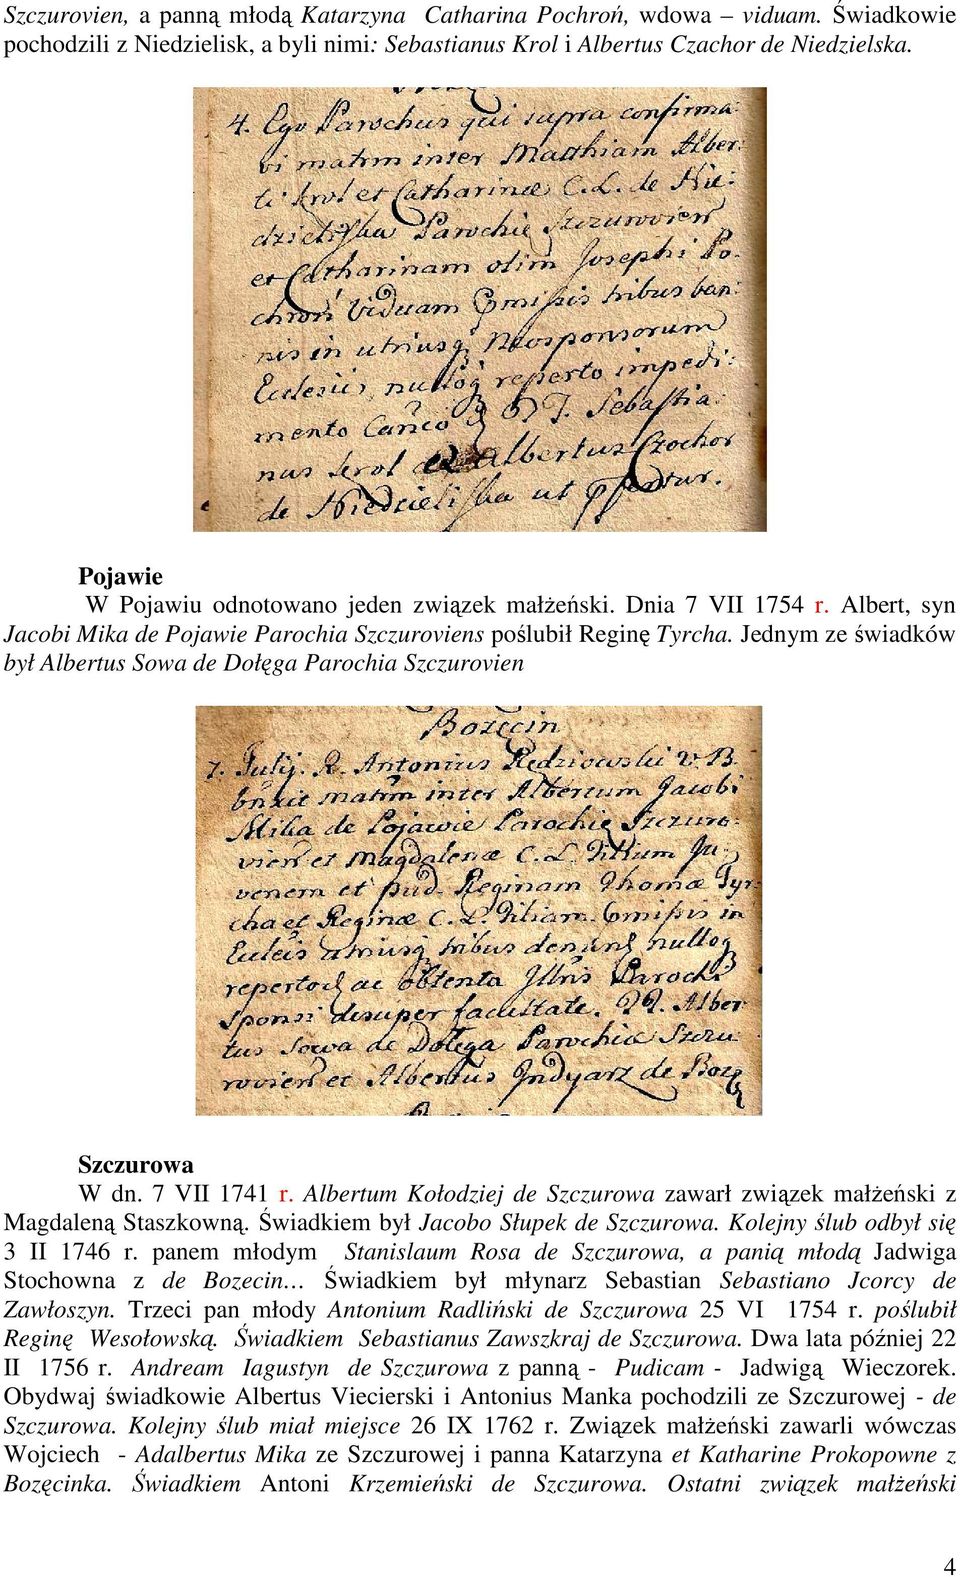 Szczurovien, a panną młodą Katarzyna Catharina Pochroń, wdowa – viduam. Świadkowie
pochodzili z Niedzielisk, a byli nimi: Sebastianus Krol i Albertus Czachor de Niedzielska.
4. Ego Parochus qui supra confirma
vi matrm inter Matthiam Alber:
ti krol et Catharinæ C. L. de Nie:
dzieliska Parochię Szczurovien
et Catharinam olim Josephi Po-
chroń Viduam Omissis tribus ban:
nis in utriusq Neosponsorum
Ecclesiis, nulloq reperto impedi:
mento Canco TT. Sebastia:
nus krol et Albertus Czochor
de Niedzieliska ut pfentur.
Pojawie
W Pojawiu odnotowano jeden związek małżeński. Dnia 7 VII 1754 r. Albert, syn
Jacobi Mika de Pojawie Parochia Szczuroviens poślubił Reginę Tyrcha. Jednym ze świadków
był Albertus Sowa de Dołęga Parochia Szczurovien
Bozęcin
7. Julij. R. Antonius Rędziowski V. B.
bnxit matrm inter Albertum Jacobi
Mika de Pojawie Parochię Szczuro-
vien et Magdalenæ C. L. Filium Ju-
venem et pud. Reginam Thomæ Tyr-
cha et Reginæ C. L. Filiam. Omissis in
Eccleis utriusq tribus denun nulloq
reperto ac obtenta Jllris Parochi
Sponsi desuper facultate. TT. Alber
tus Sowa de Dołęga Parochiæ Szczu
rovien et Albertus Jndyarz de Bozę
Szczurowa
W dn. 7 VII 1741 r. Albertum Kołodziej de Szczurowa zawarł związek małżeński z
Magdaleną Staszkowną. Świadkiem był Jacobo Słupek de Szczurowa. Kolejny ślub odbył się
3 II 1746 r. panem młodym Stanislaum Rosa de Szczurowa, a panią młodą Jadwiga
Stochowna z de Bozecin… Świadkiem był młynarz Sebastian Sebastiano Jcorcy de
Zawłoszyn. Trzeci pan młody Antonium Radliński de Szczurowa 25 VI 1754 r. poślubił
Reginę Wesołowską. Świadkiem Sebastianus Zawszkraj de Szczurowa. Dwa lata później 22
II 1756 r. Andream Iagustyn de Szczurowa z panną - Pudicam - Jadwigą Wieczorek.
Obydwaj świadkowie Albertus Viecierski i Antonius Manka pochodzili ze Szczurowej - de
Szczurowa. Kolejny ślub miał miejsce 26 IX 1762 r. Związek małżeński zawarli wówczas
Wojciech - Adalbertus Mika ze Szczurowej i panna Katarzyna et Katharine Prokopowne z
Bozęcinka. Świadkiem Antoni Krzemieński de Szczurowa. Ostatni związek małżeński
4